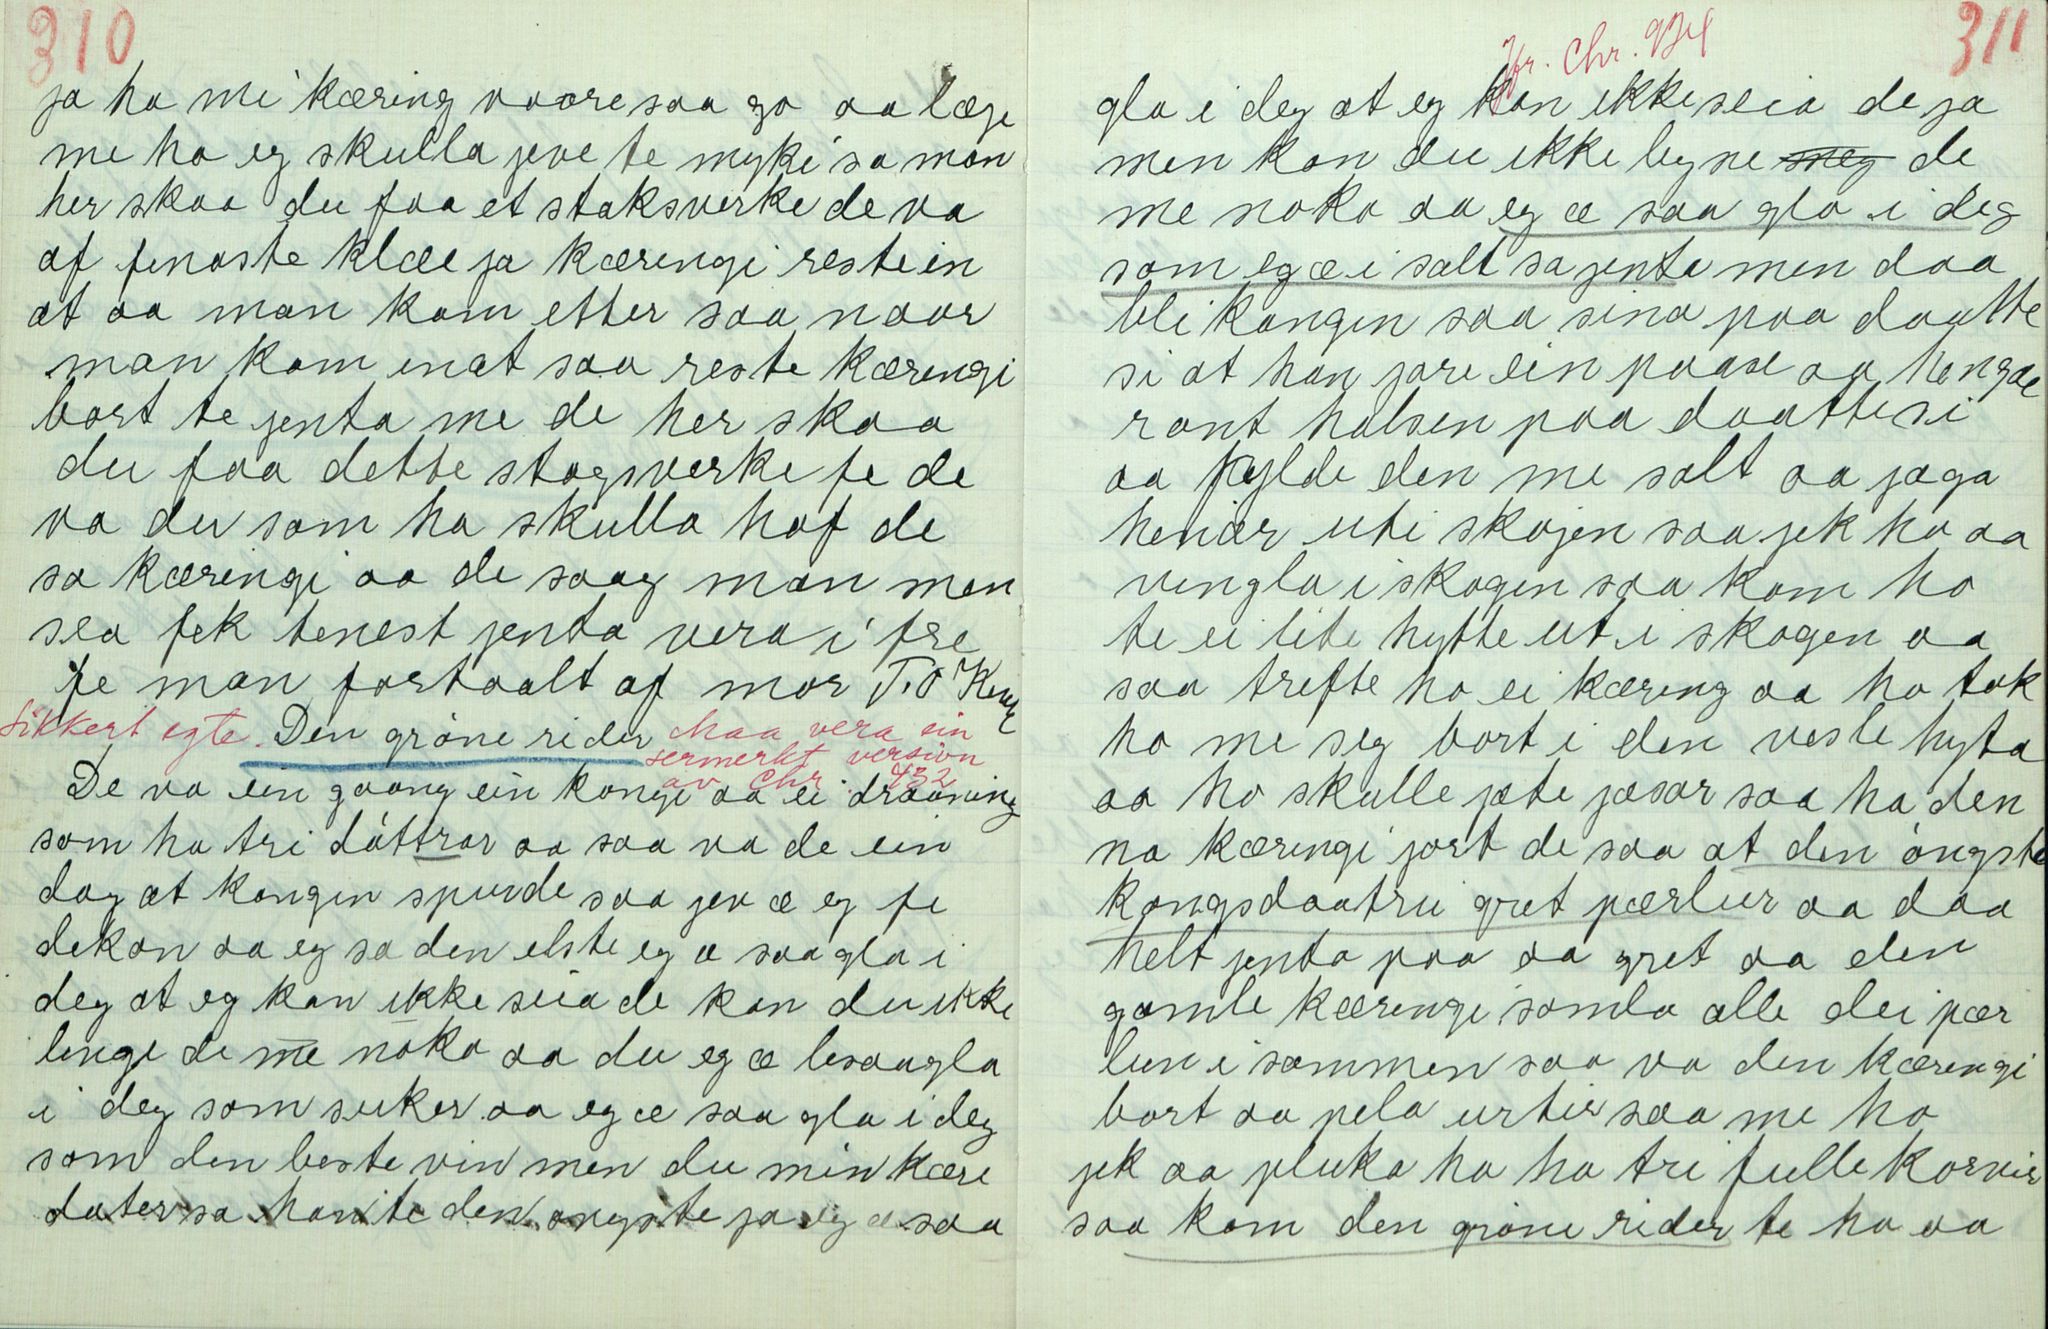 310
ja ho mi kæring vaare saa go aa læge
me ho eg skulla jeve te myki sa man
her skaa du faa et staksverke de va
af finaste klæe ja kæringi reste in
at aa man kom etter saa naar
man kom inat saa reste kæringi
bort te jenta me de her skaa
du faa dette stagsverke fe de
va du som ha skulla haf de
sa kæringi aa de saag man men
sea fek tenest jenta vera i fre
fe man fortaalt af mor T. O
Sikkert egte. Den gröne rider Maa vera ein
sermerkt version
av Chr. 432
De va ein gaang ein kongi aa ei draaning
som ha tri dåttrar aa saa va de ein
dag at kongin spurde saa jev æ eg fe
dekan aa eg sa den elste eg æ saa gla i
deg at eg kan ikke seia de kan du ikke
lingi de me noko aa du eg æ lesaagla
i deg som suker aa eg æ saa gla i deg
som den beste vin men du min kære
dater sa han te den ongste ja eg æ saa
311
Jfr. Chr.
gla i deg at eg kan ikke seia de ja
men kan du ikke ligne meg de
me noko aa eg æ saa gla i deg
som eg æ i salt sa jenta men daa
bli kongin saa sina paa daatte
si at han jore ein paase aa hengde
ront halsen paa daatte si
aa fylde den me salt aa jaga
henar uti skojen saa jek ho aa
vingla i skogen saa kom ho
te ei lite hytte ut i skogen aa
saa trefte ho ei kæring aa ho tok
ho me seg bort i den vesle hyta
aa ho skulle jæte jæsar saa ha den
na kæringi jort de saa at den öngste
kongsdaatri gret pærlur aa daa
helt jenta paa aa gret aa den
gamle kæringi samla alle dei pær
lun i sammen saa va den kæringi
bort aa pela urtir saa me ho
jek aa pluka ho ha tri fulle korvir
saa kom den gröne rider te ho aa